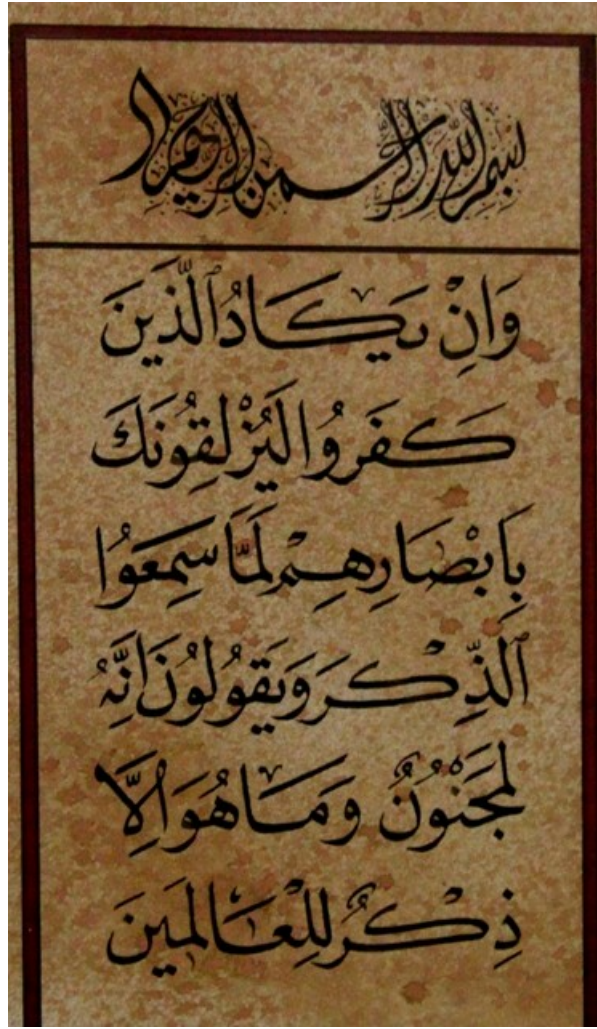 بسم الله الرحمن الرحيم
وَاِنْ يَكَادُ ٱلَّذِينَ
كَفَرُوا لَيُزْلِقُونَكَ
بِاَبْصَارِهِمْ لَمَّا سَمِعَوُا
ٱلذِّكْرَ وَيَقُولُونَ اِنَّهُ
لَمَجْنُونٌ وَمَا هُوَ اِلَّا
ذِكْرٌ لِلْعَالَمِينَ